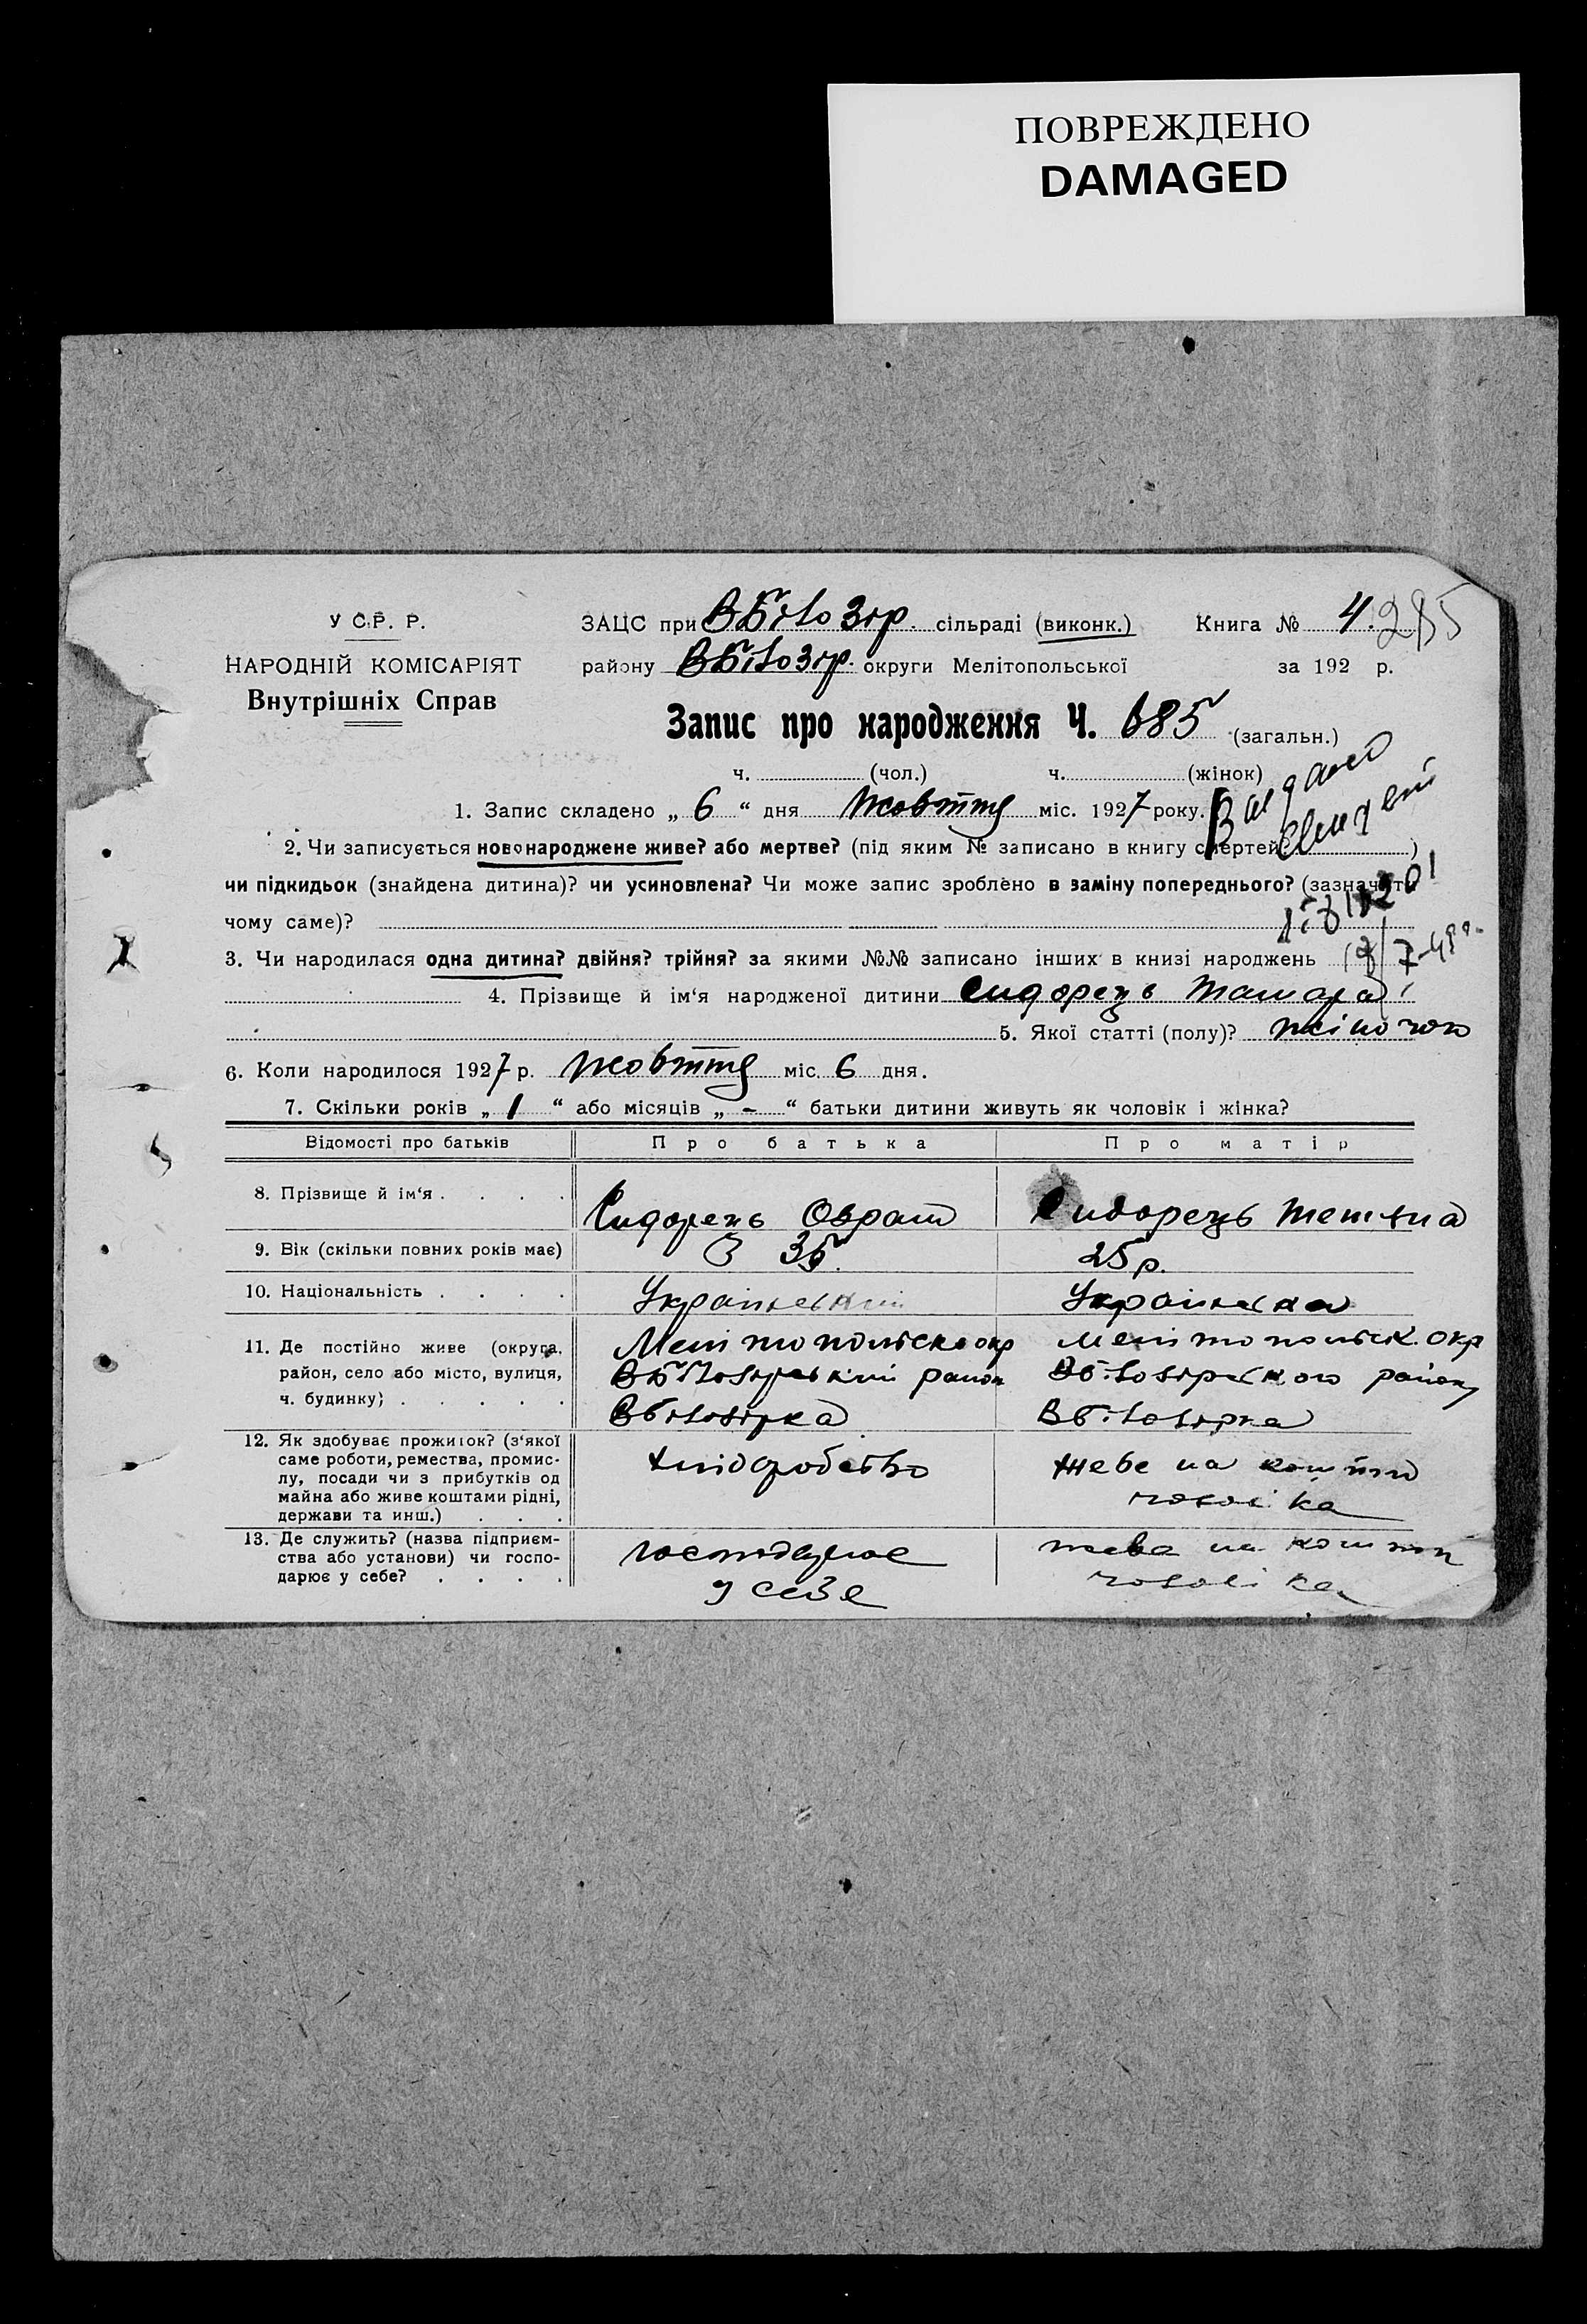 ПОВРЕЖДЕНО
DAMAGED
У С.Р. Р.
НАРОДНІЙ КОМІСАРІЯТ
Внутрішніх Справ
ЗАЦС при ВБілозір. сільраді (виконк.) Книга № 4. 285
району ВБілозір. округи Мелітопольської за 192 р.
Запис про народження Ч. 685 (загальн.)
ч. (чол.) ч. (жінок)
1. Запис складено „ 6 “ дня Жовтня міс. 1927 року.
Видано
2. Чи записується новонароджене живе? або мертве? (під яким № записано в книгу смертей )
чи підкидьок (знайдена дитина)? чи усиновлена? Чи може запис зроблено в заміну попереднього? (зазначити
чому саме)?
3. Чи народилася одна дитина? двійня? трійня? за якими №№ записано інших в книзі народжень
4. Прізвище й ім‘я народженої дитини Сидорець Тамара
5. Якої статті (полу)? жіночою
6. Коли народилося 1927 р. Жовтня міс. 6 дня.
7. Скільки років „ 1 “ або місяців „ - “ батьки дитини живуть як чоловік і жінка?
Відомості про батьків Про батька Про матір
8. Прізвище й ім‘я . . . . Сидорець Сидорець Тетяна
9. Вік (скільки повних років має) 25 р.
10. Національність . . . . Український Українська
11. Де постійно живе (округа, Мелітопольска окр Мелітопольск. окр
район, село або місто, вулиця, ВБілозірський район ВБілозірського району
ч. будинку) . . . . . ВБілозірка ВБілозірка
12. Як здобуває прожиток? (з‘якої
саме роботи, ремества, промис- хліборобство живе на кошти
лу, посади чи з прибутків од чоловіка
майна або живе коштами рідні,
держави та инш.) . . .
13. Де служить? (назва підприєм- господарює жева на кошти
ства або установи) чи госпо- у себе чоловіка
дарює у себе? . . . .